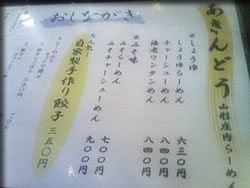 あきんどう
山形庄内らーめん
おしながき
しょうゆ
しょうゆらーめん 六三〇円
チャーシューめん 八四〇円
海老ワンタンめん 八四〇円
みそ味
みそらーめん 七〇〇円
みそチャーシューめん 九〇〇円
大人気!
自家製手作り餃子 三五〇円